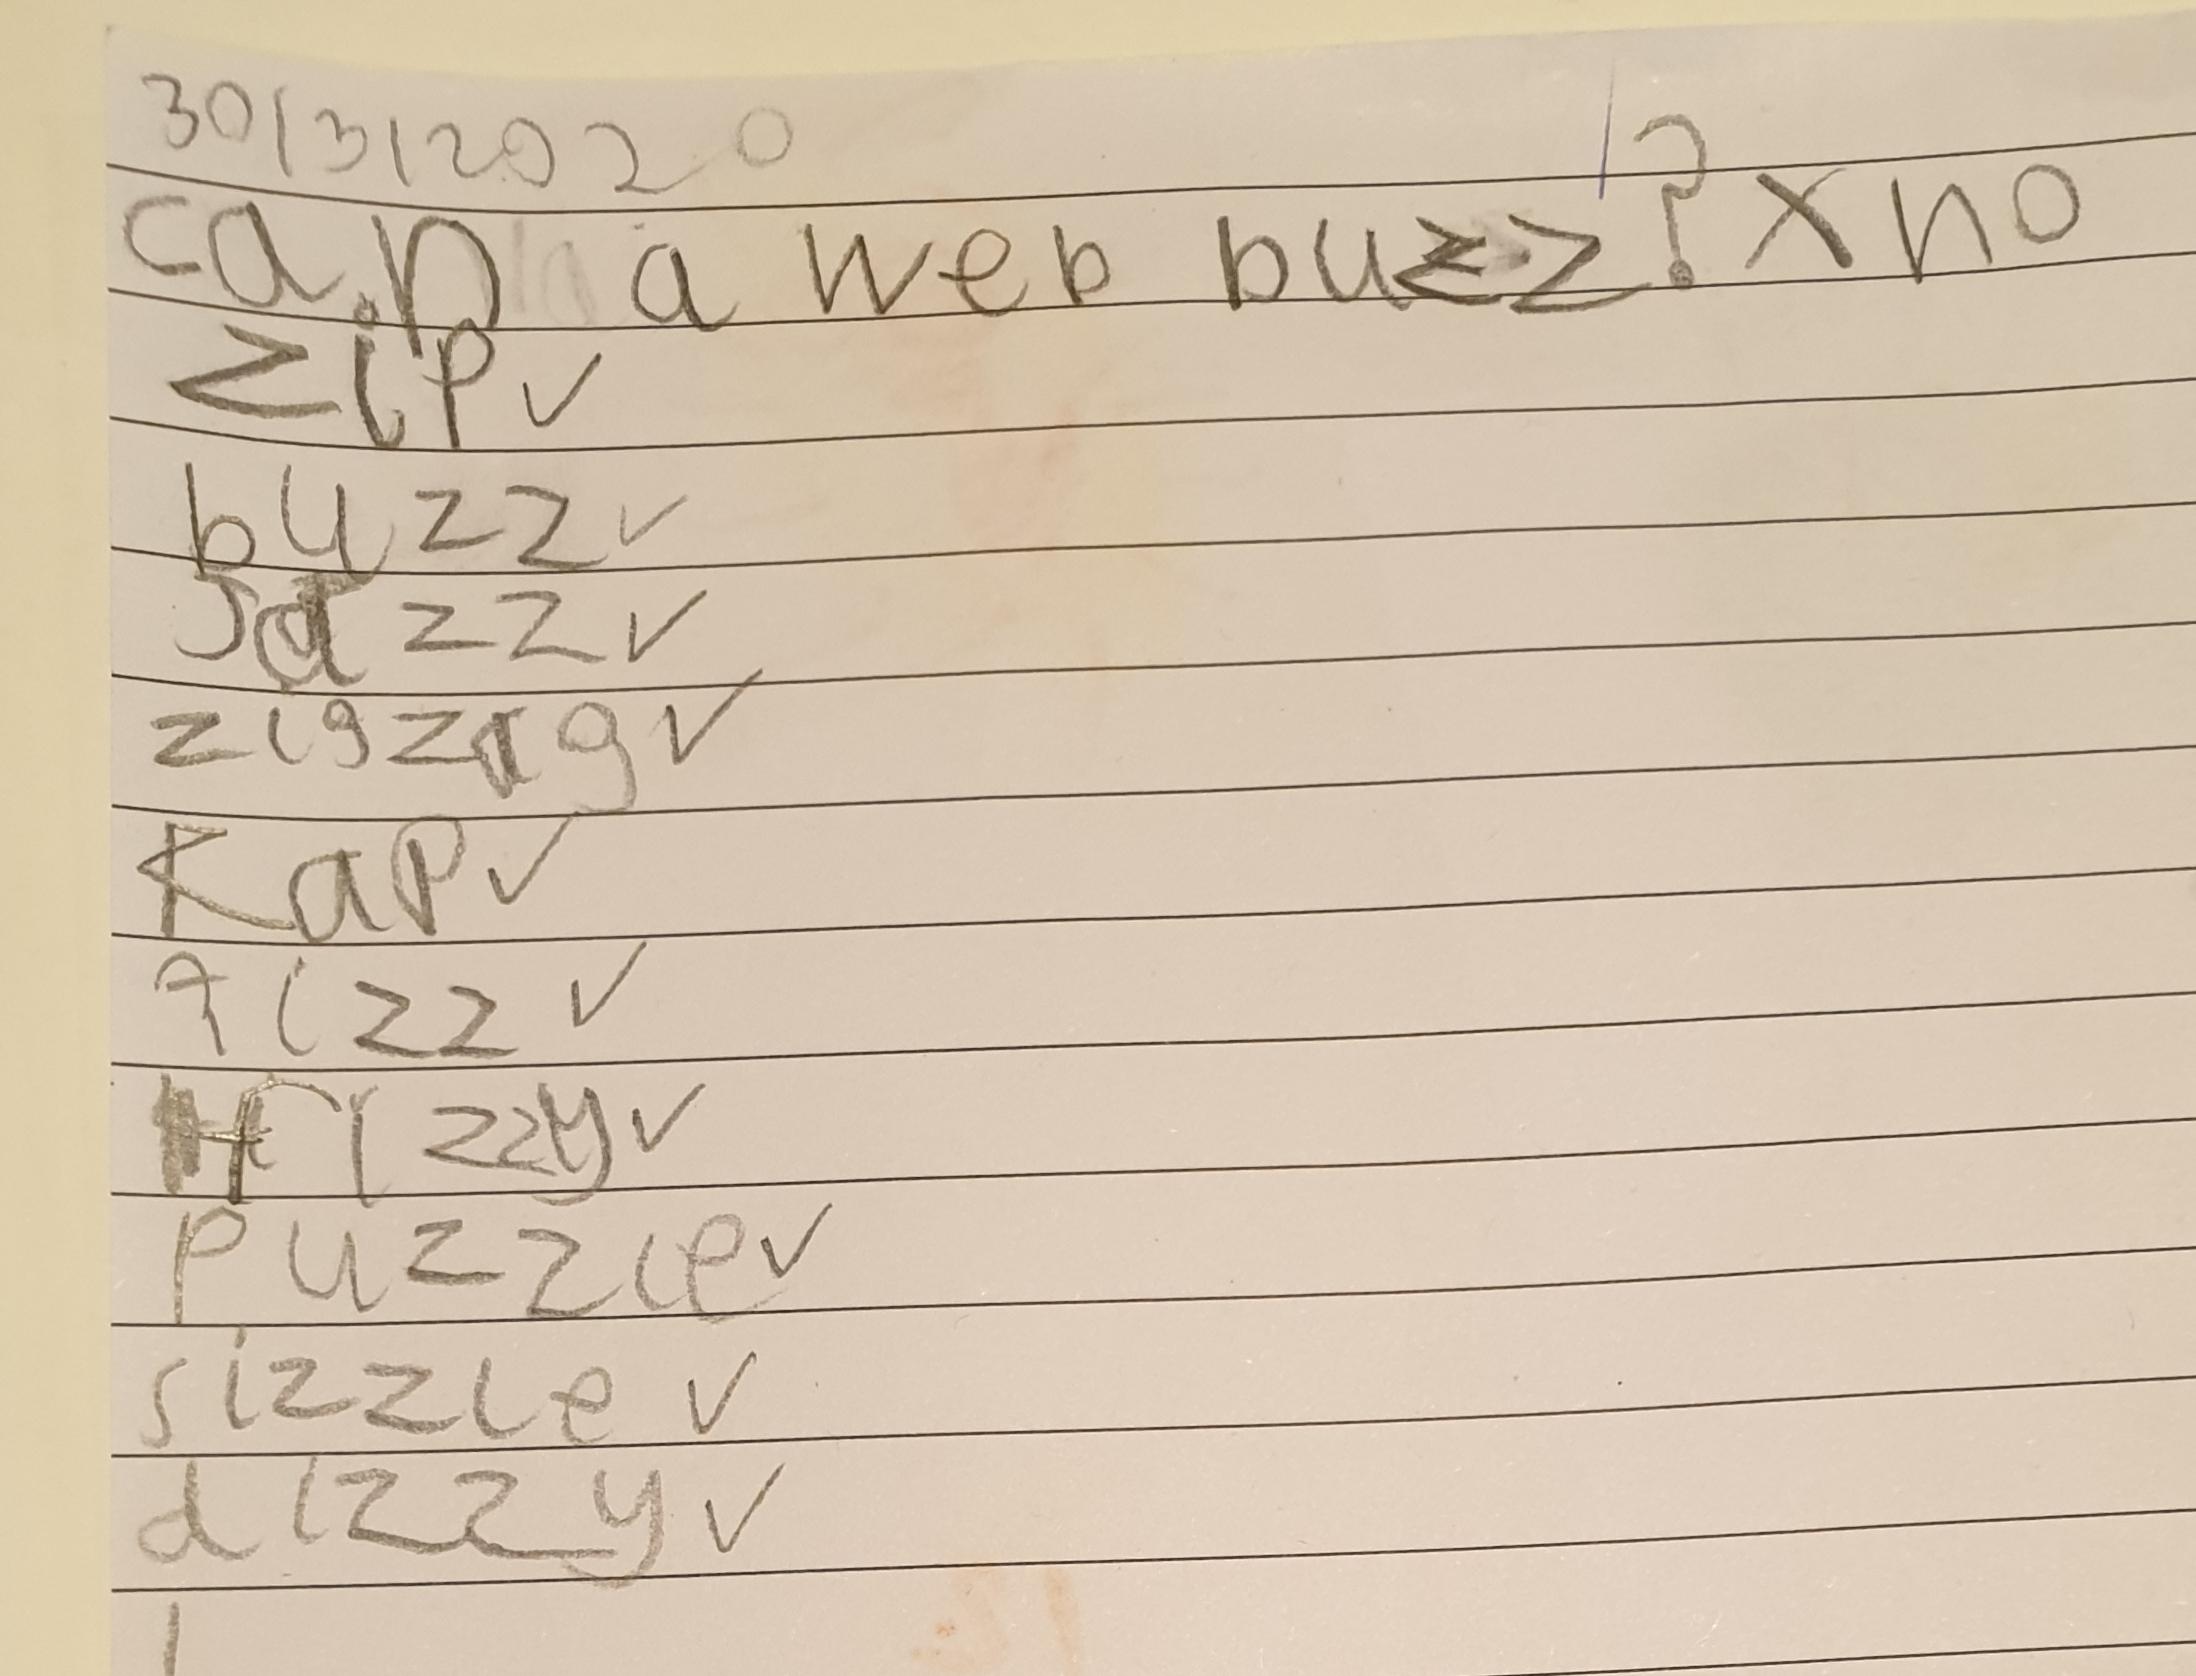 30/3/2020
can a web buzz? x no
zip ✓
buzz ✓
Jazz ✓
zigzag ✓
Kap ✓
fizz ✓
frizzy ✓
puzzle ✓
sizzle ✓
dizzy ✓